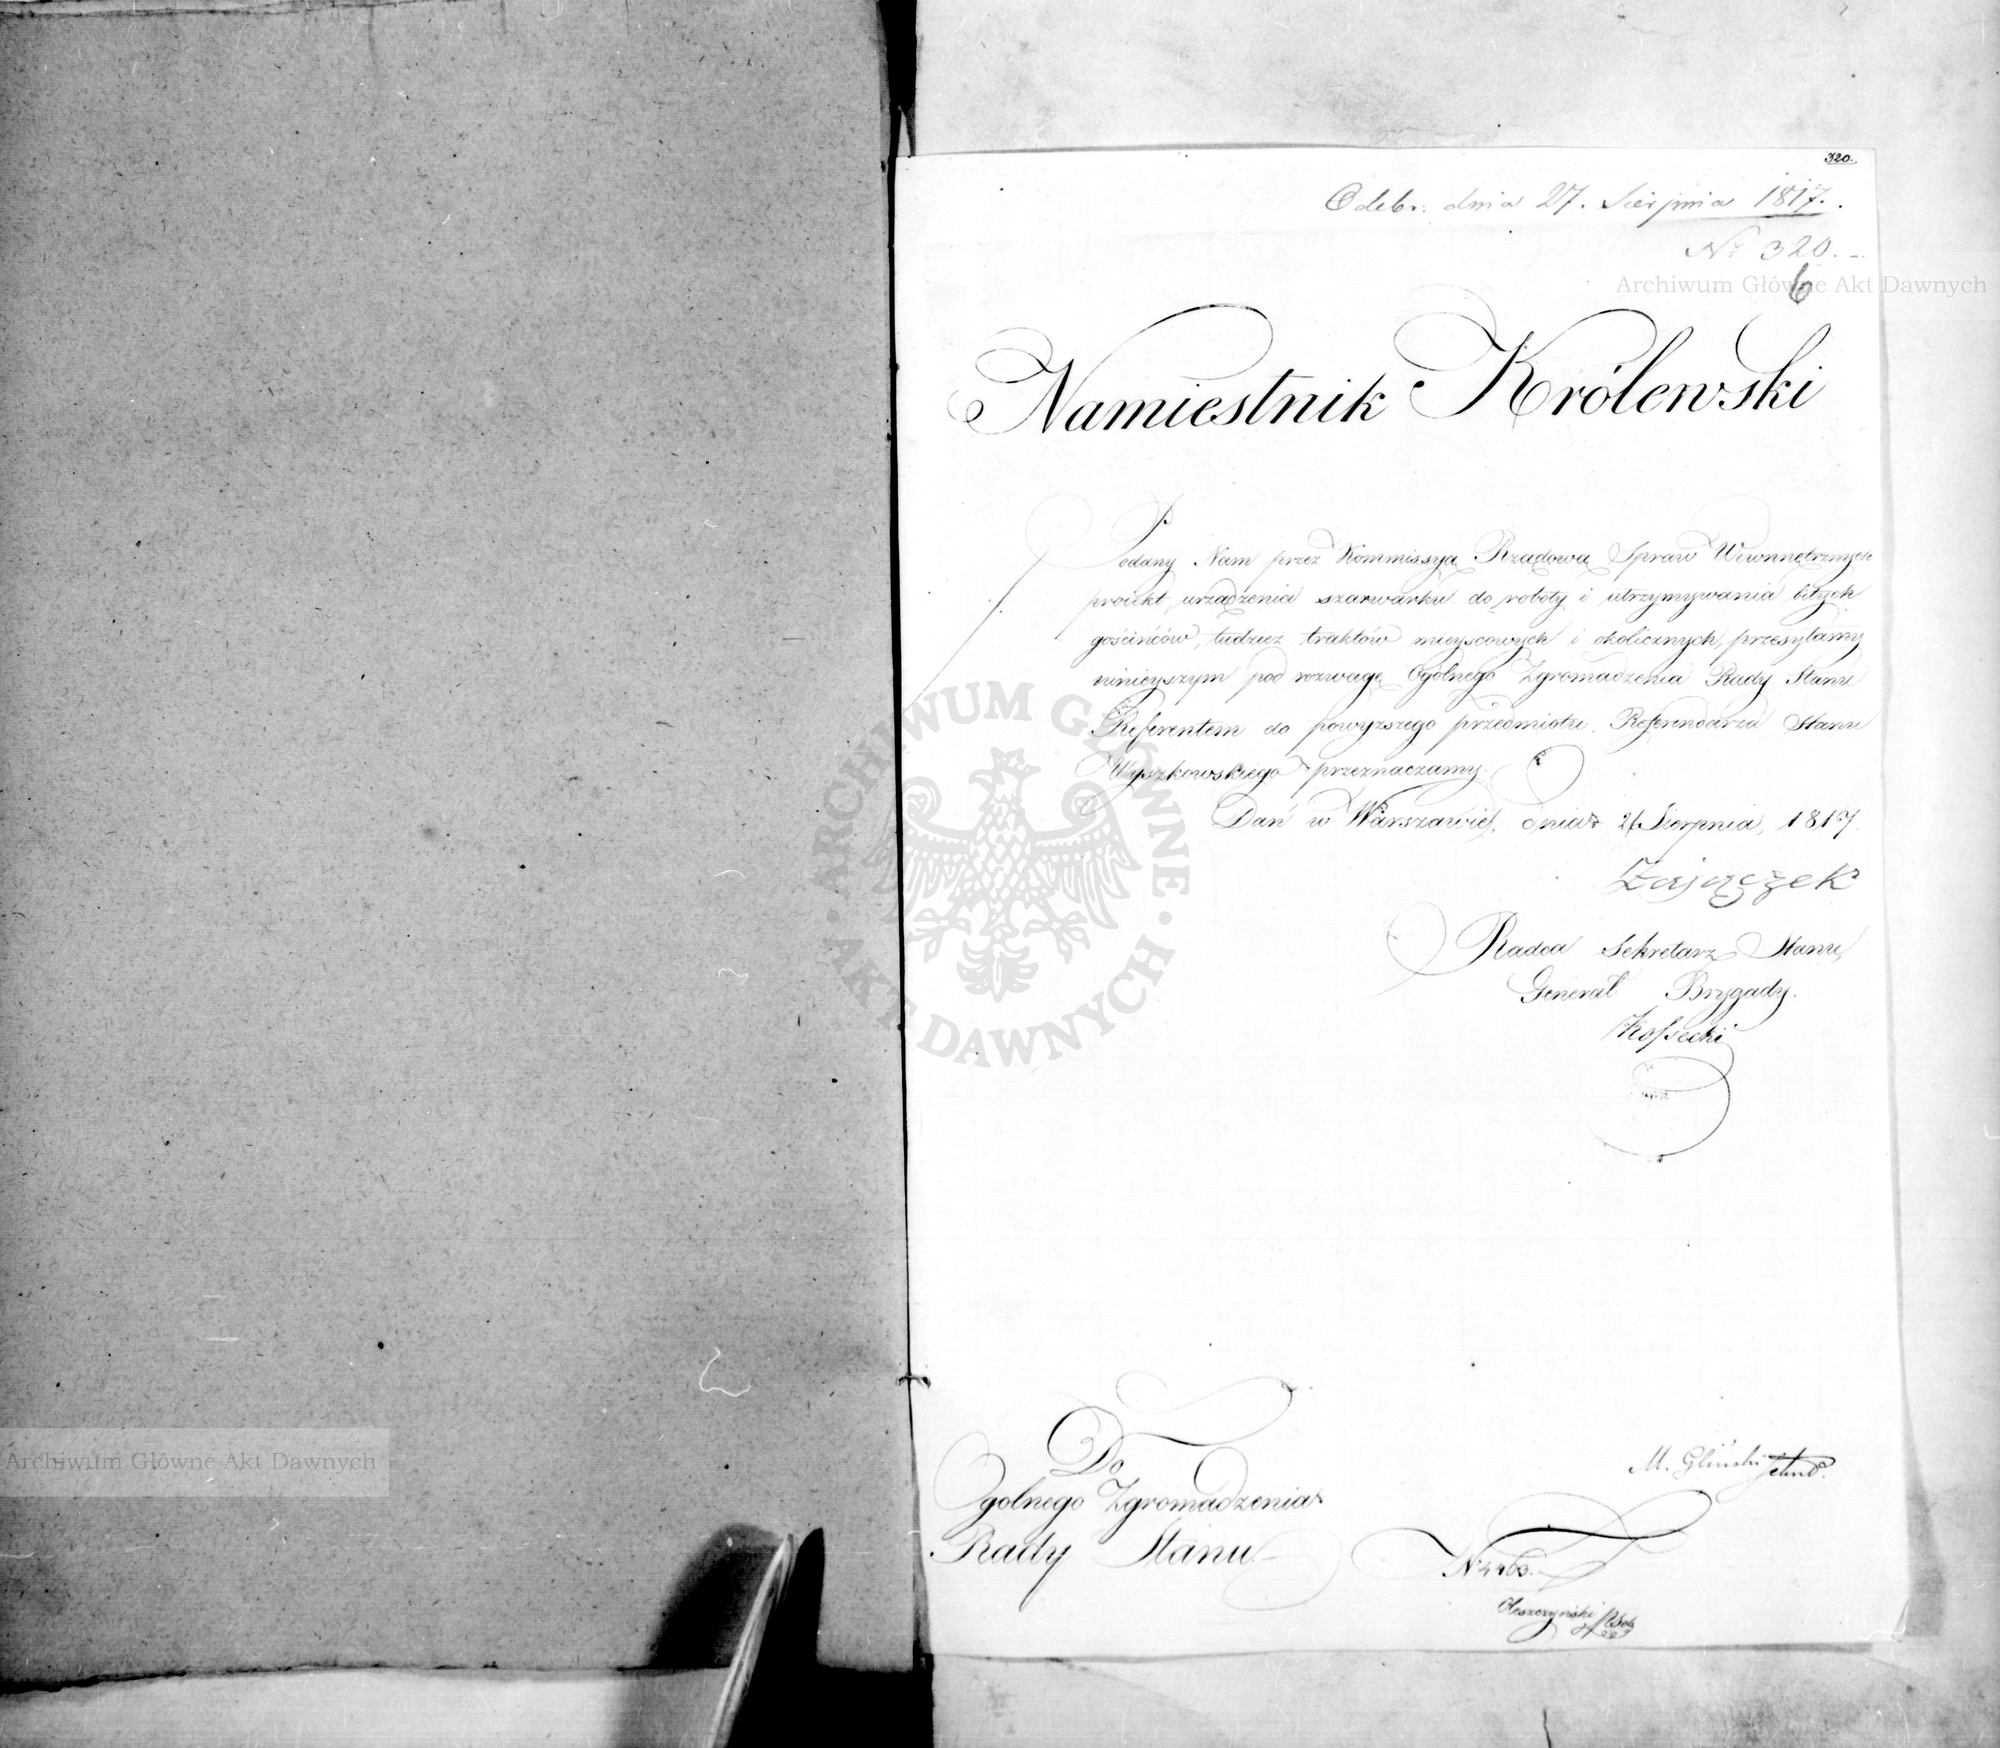 320.
Odebr: dnia 27. Sierpnia 1817.
Nr 320.
6
Archiwum Główne Akt Dawnych
Namiestnik Królewski
Podany Nam przez Kommissyą Rządową Spraw Wewnnętrznych
proiekt, urządzenia szarwarku do roboty i utrzymywania bitych
gościńców, tudzież traktów mieyscowych i okolicznych, przesyłamy
ninieyszym pod rozwagę Ogólnego Zgromadzenia Rady Stanu
Referentem do powyższego przedmiotu Referendarza Stanu
Wyszkowskiego przeznaczamy.
Dań w Warszawie, dnia 26 Sierpnia, 1817
Zajączek
Radca Sekretarz Stanu,
Generał Brygady.
Kossecki
ARCHIWUM GŁÓWNE · AKT DAWNYCH ·
Do
Ogolnego Zgromadzenia
Rady Stanu
M. Gliński
Oleszczyński
Archiwum Główne Akt Dawnych